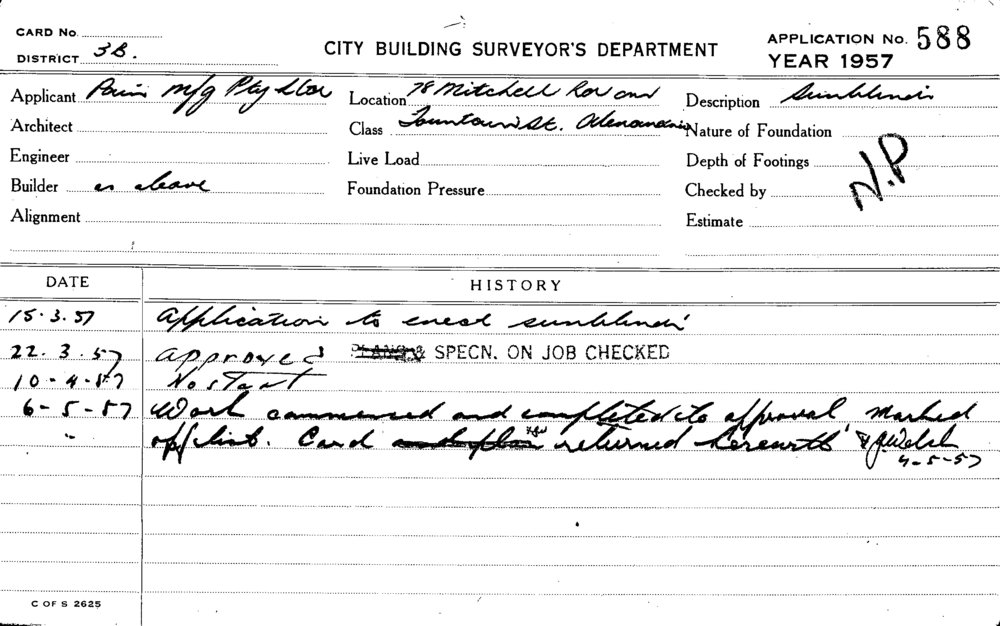 CARD No.
DISTRICT 3B.
CITY BUILDING SURVEYOR'S DEPARTMENT
APPLICATION No. 588
YEAR 1957
Applicant M/g Pty Ltd
Location 78 Mitchell Road and
Description Sunblinds
Architect
Class Fountain St. Alexandria
Nature of Foundation
Engineer
Live Load
Depth of Footings
N.P
Builder as above
Foundation Pressure
Checked by
Alignment
Estimate
DATE
HISTORY
15.3.57 Application to erect sunblinds
22.3.57 Approved PLANS & SPECN. ON JOB CHECKED
10-4-57 No start
6-5-57 Work commenced and completed to approval marked
" off list. Card returned herewith Welsh
9-5-57
C OF S 2625